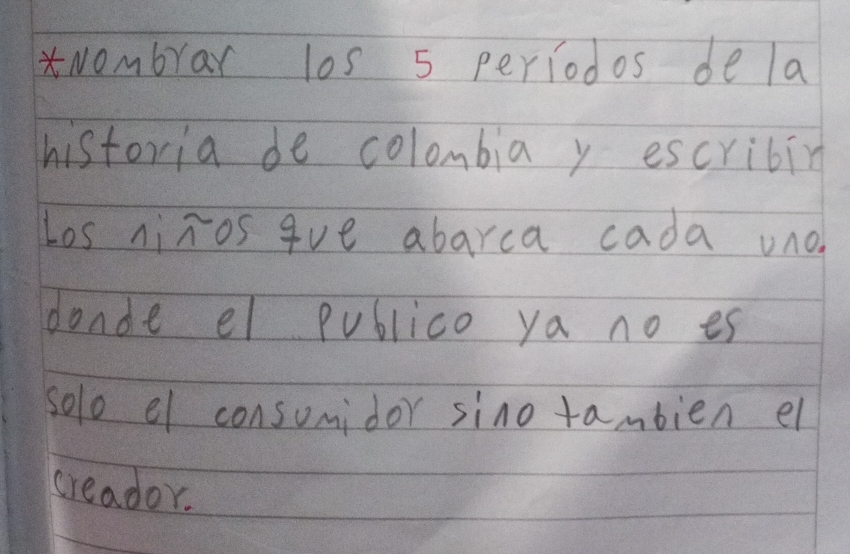 *Nombrar los 5 períodos de la
historia de colombia y escribir
Los niños que abarca cada uno.
donde el publico ya no es
solo el consumidor sino tambien el
creador.